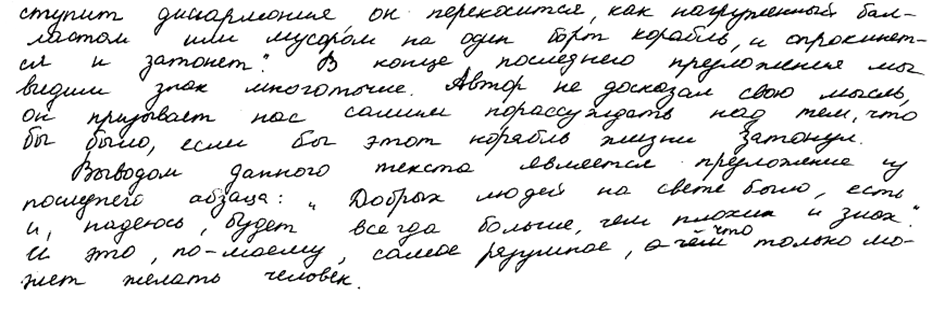 ступит дисгармония, он перекосится, как нагруженный бал-
ластом или мусором на один борт корабль, и опрокинет-
ся и затонет". В конце последнего предложения мы
видим знак многоточие. Автор не досказал свою мысль,
он призывает нас самим порассуждать над тем, что
бы было, если бы этот корабль жизни затонул.
Выводом данного текста является предложение из
последнего абзаца: „Добрых людей на свете было, есть
и, надеюсь, будет всегда больше, чем плохих и злых".
И это, по-моему, самое разумное, что только мо-
жет желать человек.